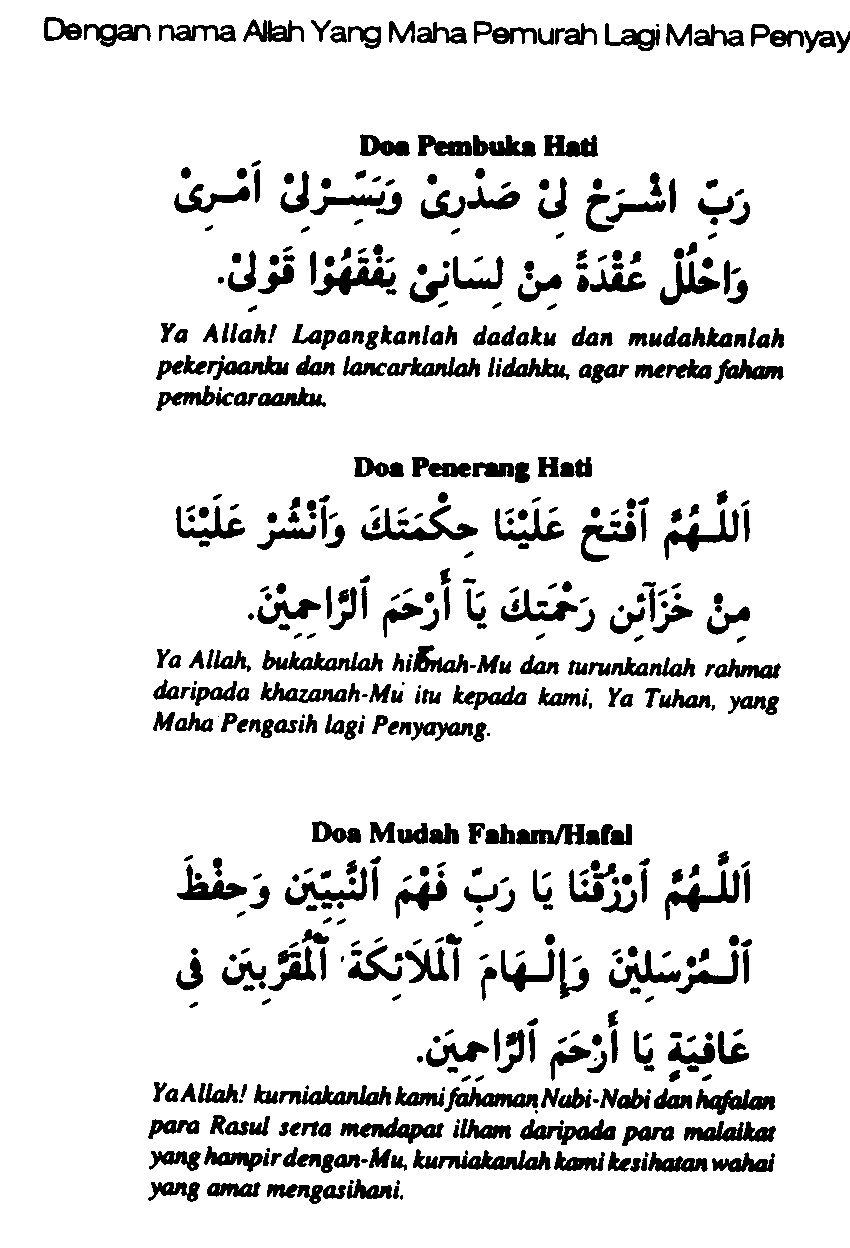 Dengan nama Allah Yang Maha Pemurah Lagi Maha Penyay
Doa Pembuka Hati
رَبِّ اشْرَحْ لِيْ صَدْرِيْ وَيَسِّرْلِيْ اَمْرِيْ
وَاحْلُلْ عُقْدَةً مِنْ لِسَانِيْ يَفْقَهُوْا قَوْلِيْ.
Ya Allah! Lapangkanlah dadaku dan mudahkanlah
pekerjaanku dan lancarkanlah lidahku, agar mereka faham
pembicaraanku.
Doa Penerang Hati
اَللَّهُمَّ ٱفْتَحْ عَلَيْنَا حِكْمَتَكَ وَٱنْشُرْ عَلَيْنَا
مِنْ خَزَآئِنِ رَحْمَتِكَ يَآ أَرْحَمَ ٱلرَّاحِمِيْنَ.
Ya Allah, bukakanlah hikmah-Mu dan turunkanlah rahmat
daripada khazanah-Mu itu kepada kami, Ya Tuhan, yang
Maha Pengasih lagi Penyayang.
Doa Mudah Faham/Hafal
اَللَّهُمَّ ٱرْزُقْنَا يَا رَبِّ فَهْمَ ٱلنَّبِيِّيْنَ وَحِفْظَ
ٱلْمُرْسَلِيْنَ وَإِلْهَامَ ٱلْمَلَائِكَةَ ٱلْمُقَرَّبِيْنَ فِى
عَافِيَةٍ يَا أَرْحَمَ ٱلرَّاحِمِيْنَ.
Ya Allah! kurniakanlah kami fahaman Nabi-Nabi dan hafalan
para Rasul serta mendapat ilham daripada para malaikat
yang hampir dengan-Mu, kurniakanlah kami kesihatan wahai
yang amat mengasihani.